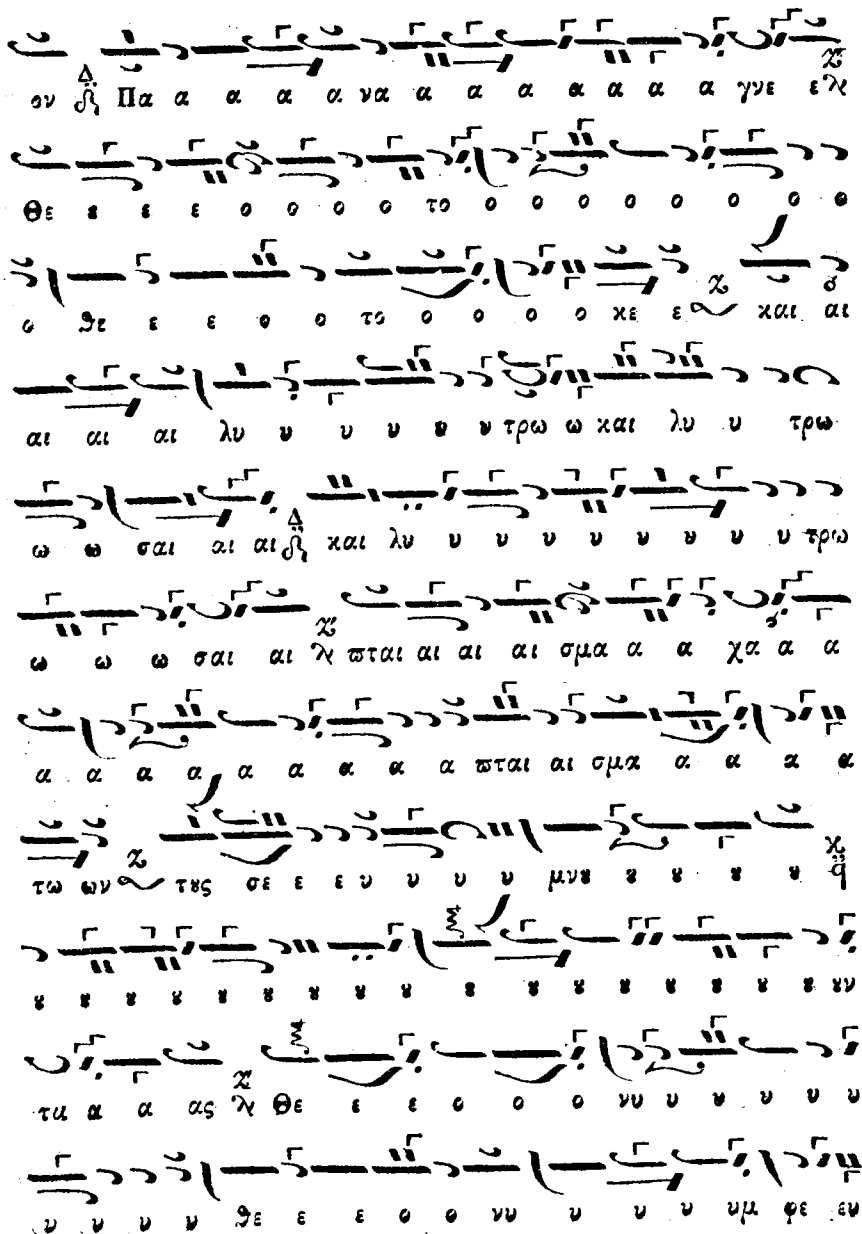 ον Δ Πα α α α α να α α α α α α α γνε ε
Θε ε ε ε ο ο ο ο το ο ο ο ο ο ο ο ο
ο θε ε ε ο ο το ο ο ο ο κε ε και αι
αι αι αι λυ υ υ υ υ υ τρω ω και λυ υ τρω
ω ω σαι αι αι Δ και λυ υ υ υ υ υ υ υ υ τρω
ω ω ω σαι αι ϖται αι αι αι αι σμα α α χα α α
α α α α α α α α α ϖται αι σμα α α α α
τω ων τȣς σε ε ε υ υ υ υ μνȣ ȣ ȣ ȣ ȣ
ȣ ȣ ȣ ȣ ȣ ȣ ȣ ȣ ȣ ȣ ȣ ȣ ȣ ȣ ȣ ȣν
τα α α ας Θε ε ε ο ο ο νυ υ υ υ υ υ
υ υ υ υ θε ε ε ο ο νυ υ υ υ υμ φε ευ